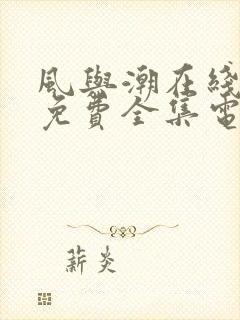 風與潮在綫
免費全集電
薪炎